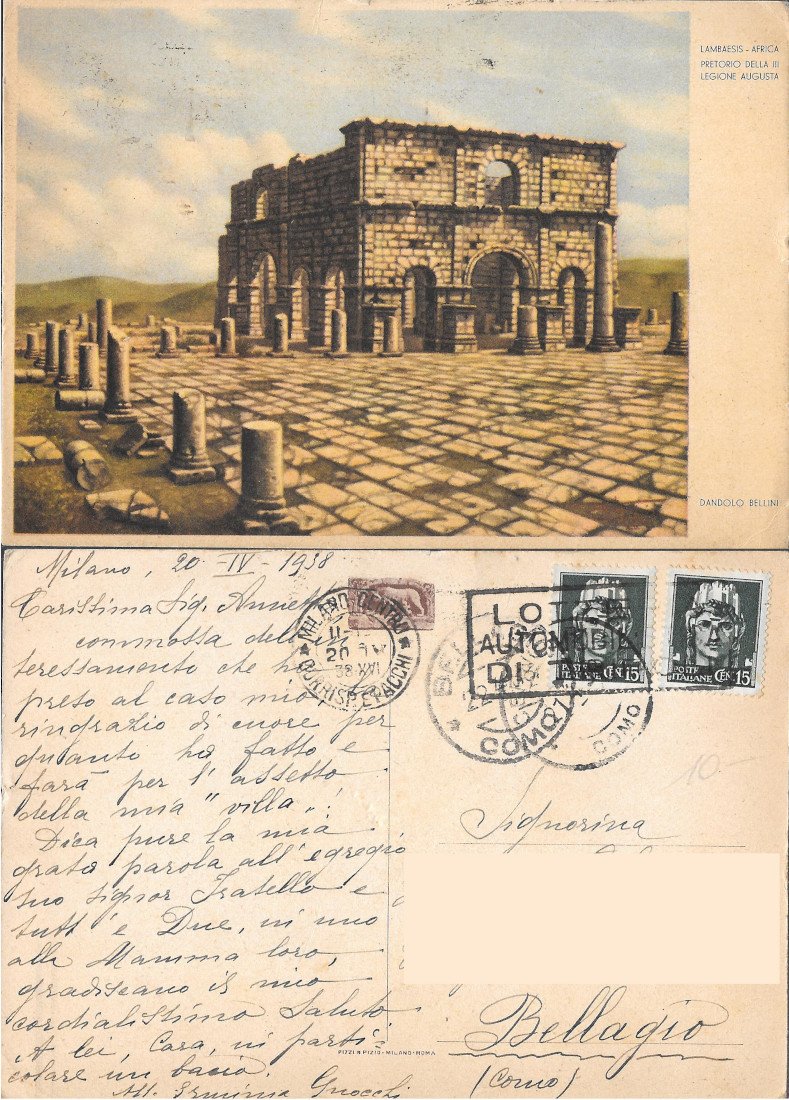 LAMBAESIS - AFRICA
PRETORIO DELLA III
LEGIONE AUGUSTA
DANDOLO BELLINI
Milano, 20 - IV - 1938
Carissima Sig. Annetta
commossa dell'
teressamento che ha
preso al caso mio,
ringrazio di cuore per
quanto ha fatto e
farà per l'assetto
della mia "villa"!
Dica pure la mia
grata parola all'egregio
suo signor Fratello e
tutt'e Due, in uno
alla Mamma loro,
gradiscano il mio
cordialissimo saluto
A lei, Cara, in parti-
colare un bacio.
Aff. Erminia Gnocchi
MILANO CENTRO
11-
20 IV
38 XVI
CORRISP. E PACCHI
LOT
AUTOMOBIL
DI
COMO
COMO
POSTE ITALIANE CEN. 15
POSTE ITALIANE CEN. 15
10.-
Signorina
Bellagio
(Como)
PIZZI & PIZIO - MILANO - ROMA